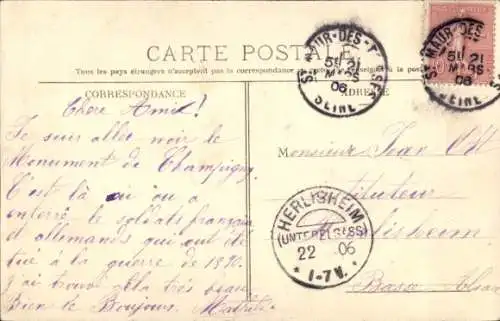 CARTE POSTALE
Tous les pays étrangers n'acceptent pas la correspondance au
CORRESPONDANCE
ADRESSE
ST MAUR-DES-FOSSÉS
5E 21
MARS
06
SEINE
ST MAUR-DES
5E 21
MARS
06
SEINE
Chère Amie!
Je suis allée voir le
Monument de Champigny
C'est là où on a
enterré le soldats français
et allemands qui ont été
tué à la guerre de 1870.
j'ai trouvé cela très beau
Bien le Bonjour. Mathilde
Monsieur Jean Ott
Instituteur
Herlisheim
Basse Alsace
HERLISHEIM
(UNTERELSASS)
22 06
* 1-7 V. *